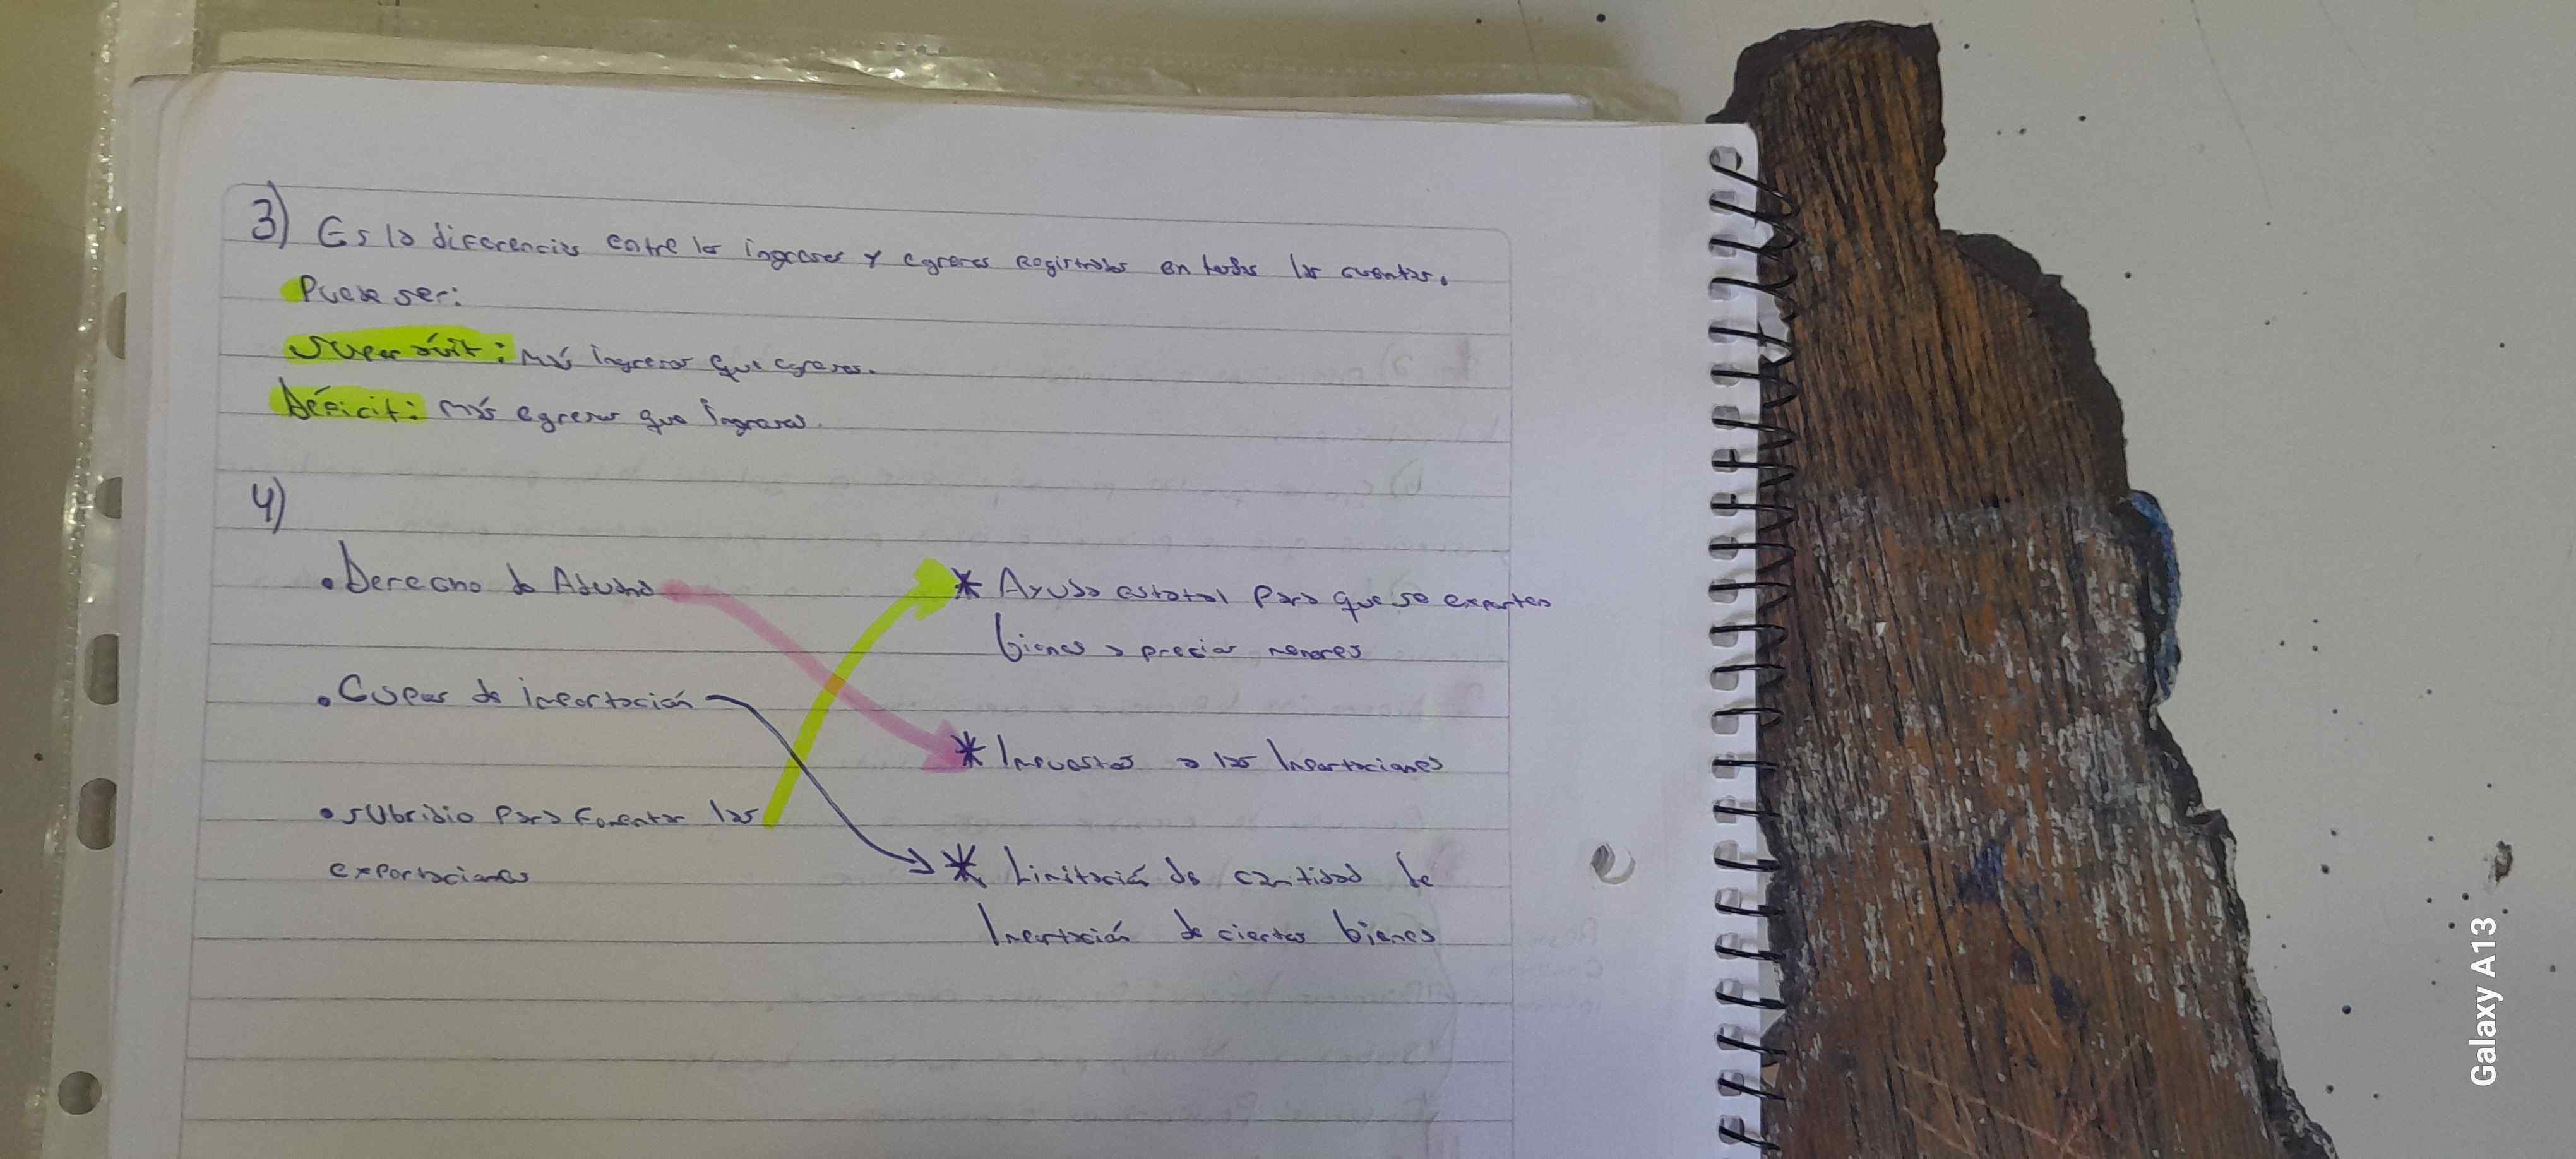 3) Es la diferencias entre los ingresos y egresos registrados en todas las cuentas.
Puede ser:
Superávit: más ingresos que egresos.
Déficit: más egresos que ingresos.
4)
• Derecho de Aduana
* Ayuda estatal para que se exporten
bienes a precios menores
• Cupos de importación
* Impuestos a las Importaciones
• subsidio para fomentar las
exportaciones
* Limitación de cantidad de
Importación de ciertos bienes
Galaxy A13